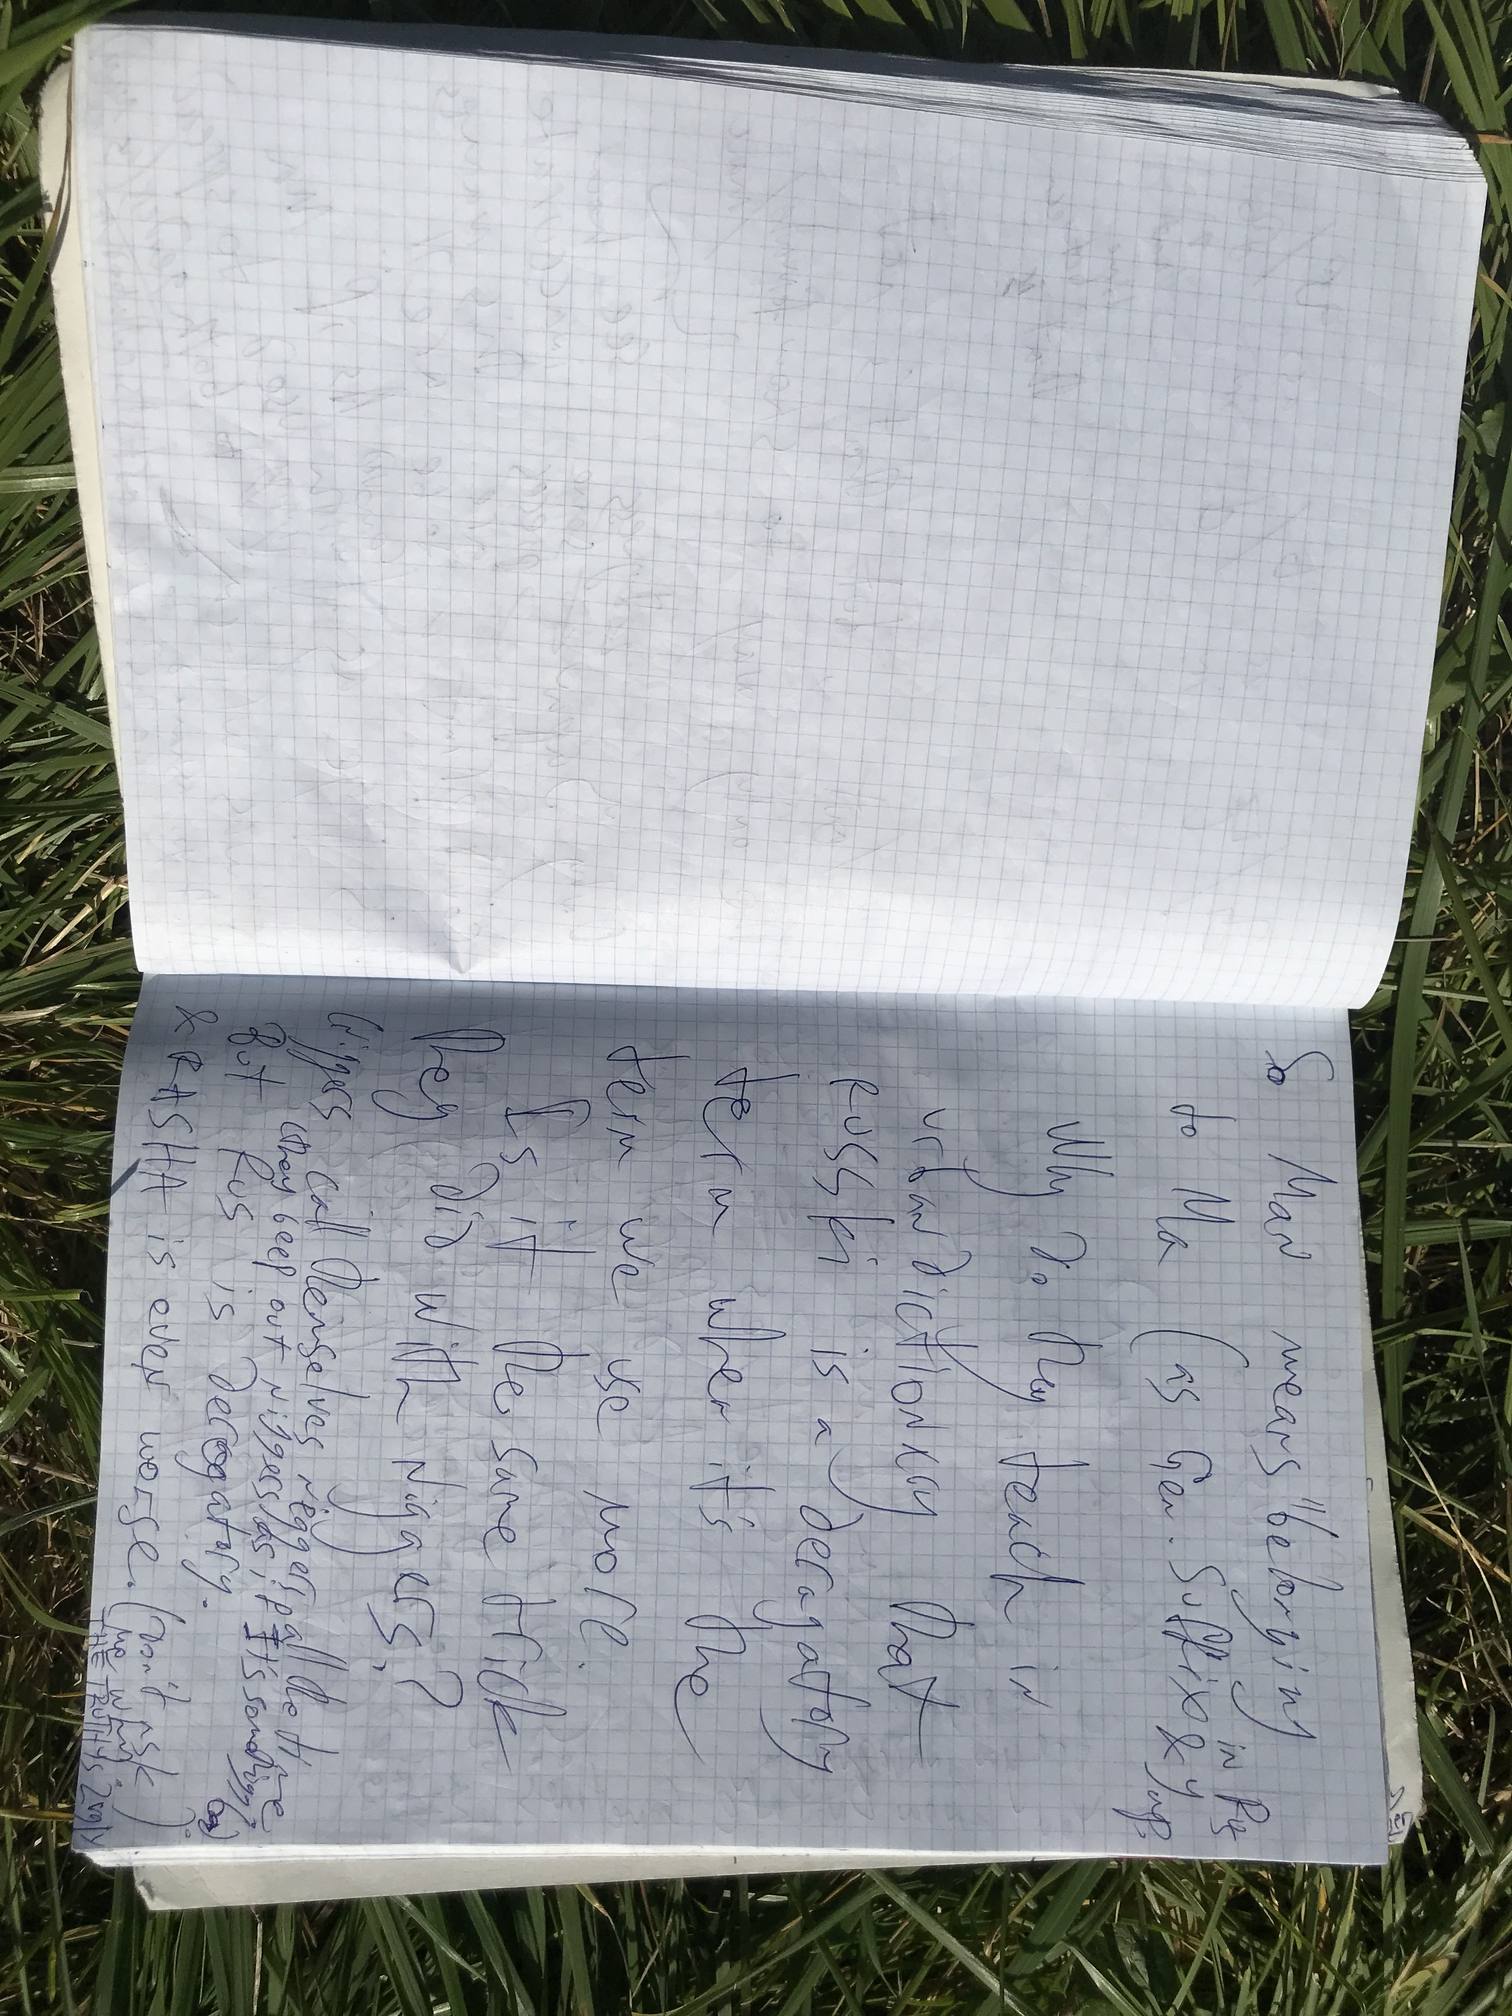 So Man means "belonging
to Ma (as Gen. Suffix in Rus & Jap.
Why do they teach in
urbandictionray that
russki is a deragatory
term when it's the
term we use more.
Is it the same trick
they did with niggers?
call themselves niggers, all the time
(they beep out niggers as if it's something
But Rus is derogatory.
& RASHA is even worse. (Don't ask
me why).
THE TRUTH'S Ugly